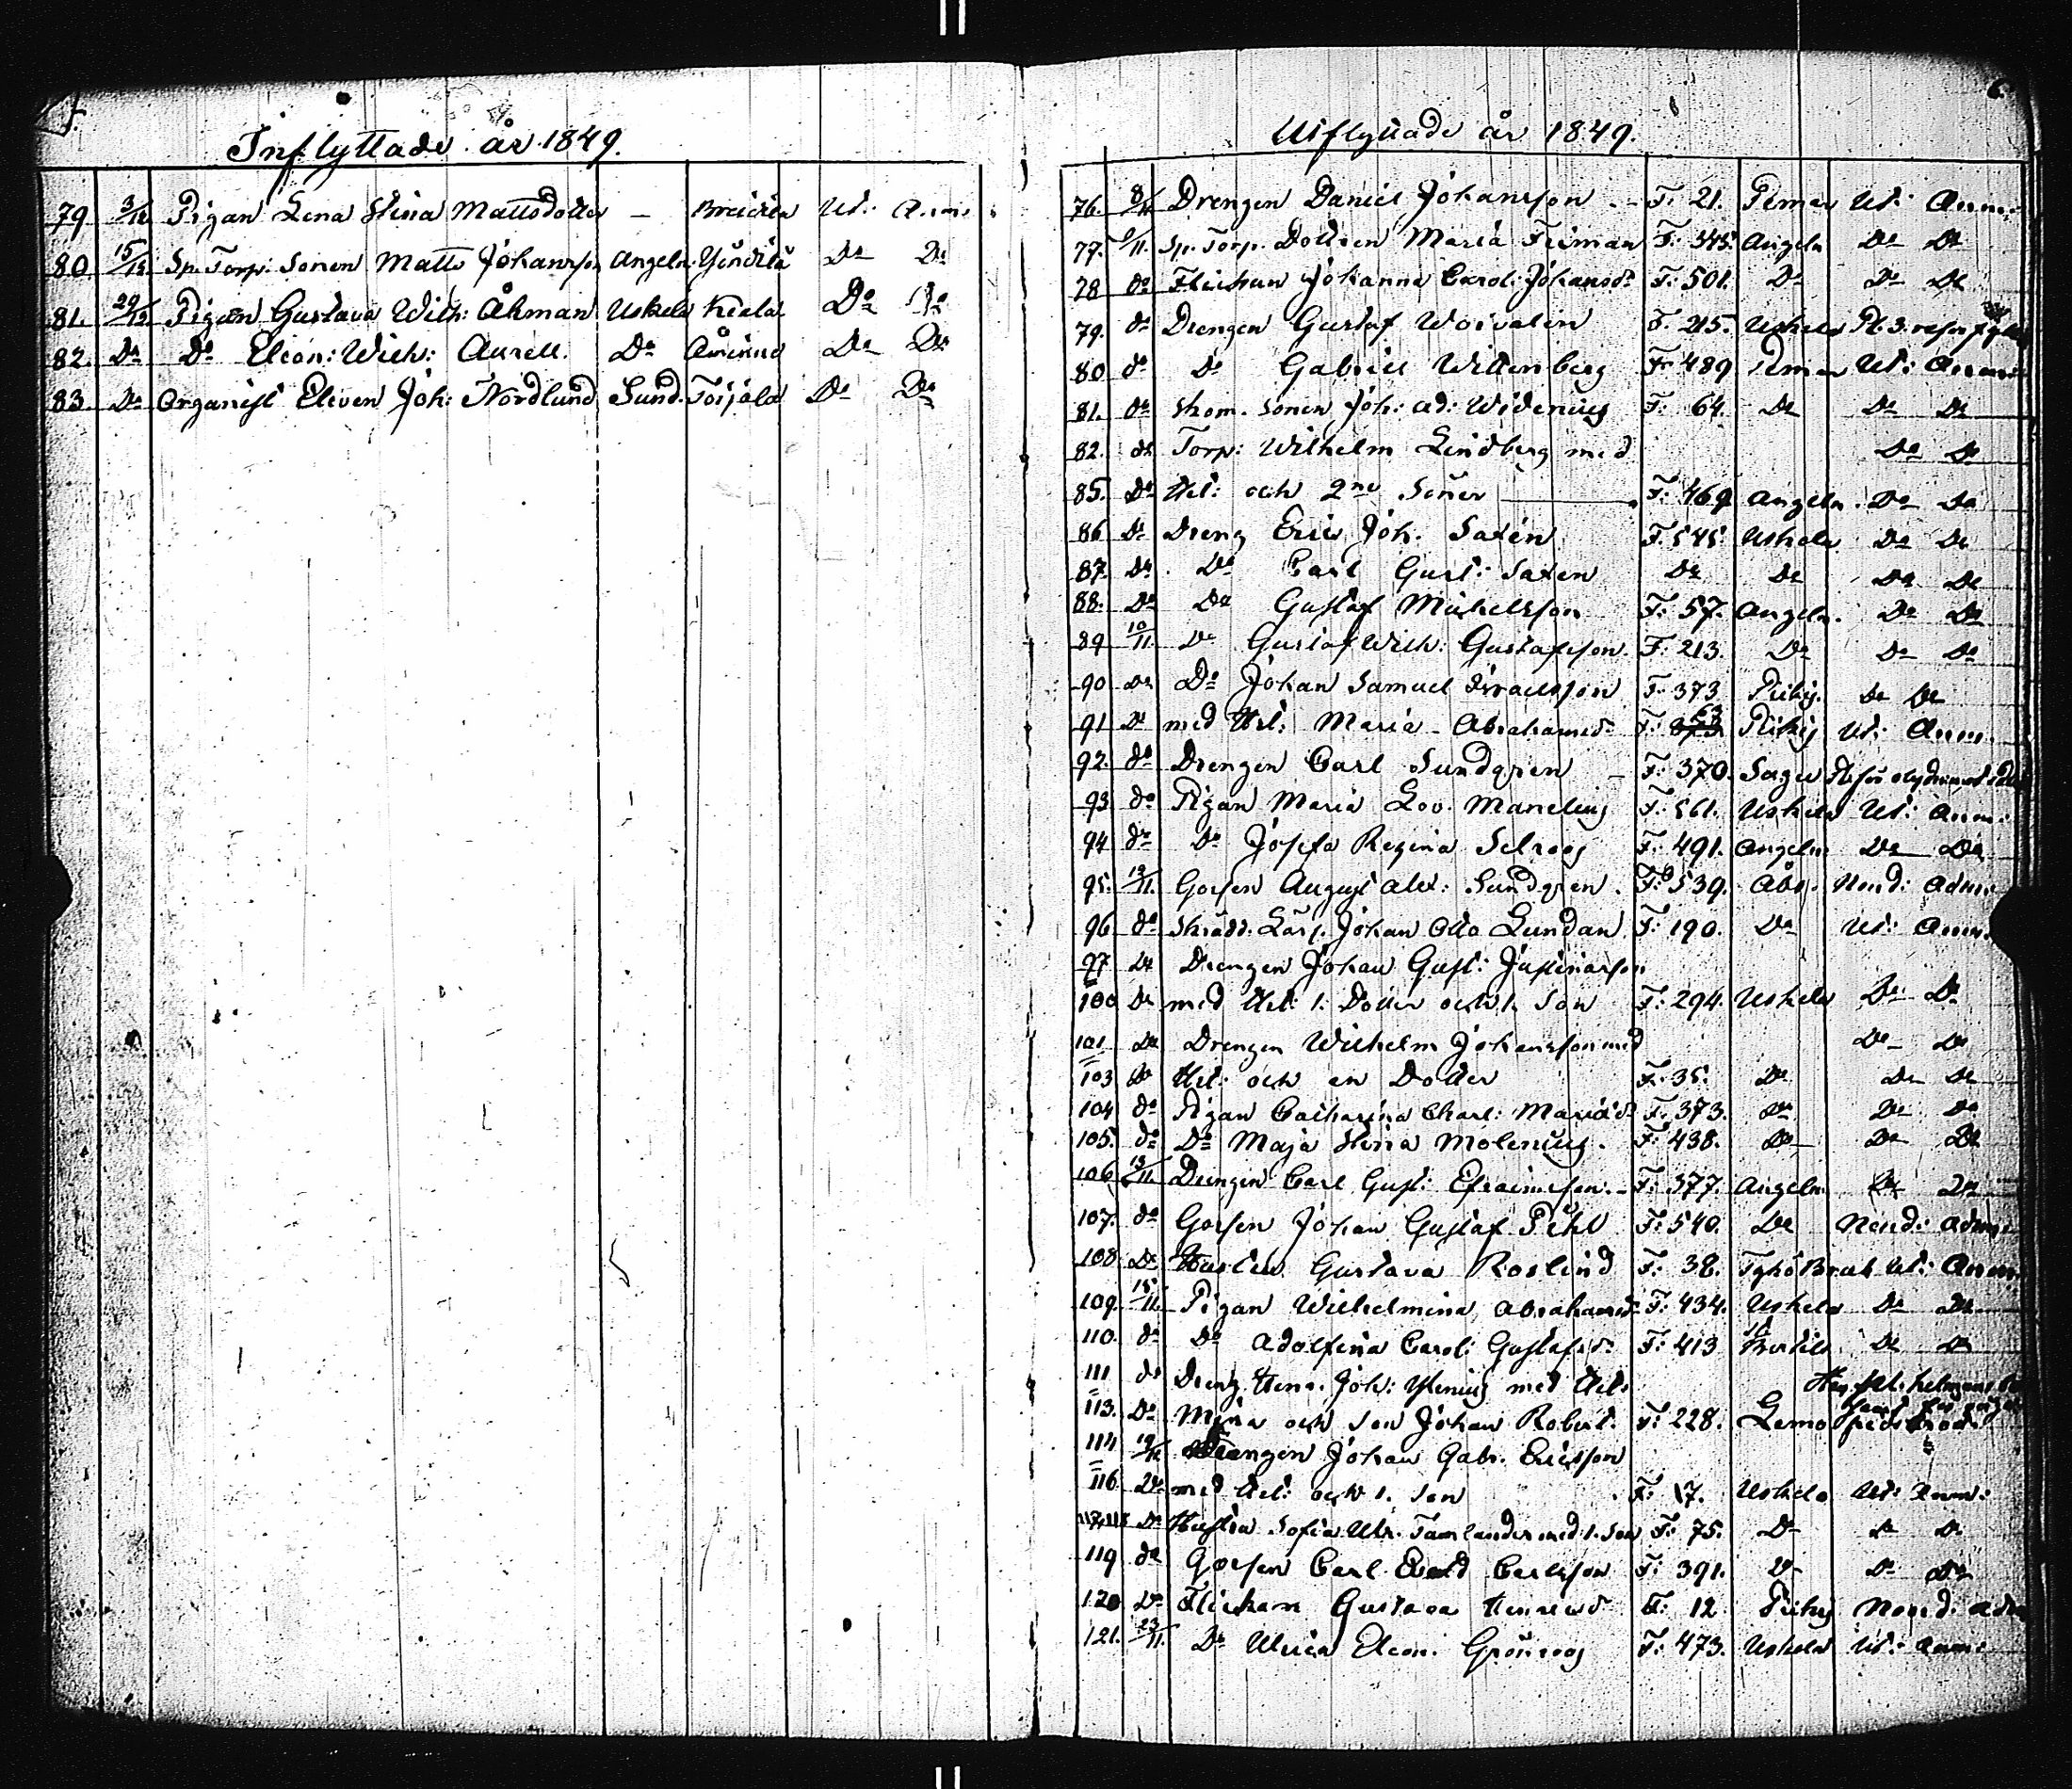 5.
Inflyttade år 1849.
79 3/12 Pigan Lena Stina Mattsdotter — Breidila Ut: Anm:
80 15/12 Sp. Torp. Sonen Matts Johansson Angeln: Do Do
81. 29/12 Pigan Gustava Wilh: Åhman Uskela Kiala Do Do
82. Do Do Eleon: Wilh: Aurell. Do Åminne Do Do
83. Do Organist Eleven Joh: Nordlund Sund. Toijala Do Do
6.
Utflyttade år 1849.
76. 8/11 Drengen Daniel Johansson - F: 21. Pemar Ut: Anm:
77. 9/11. Sp. Torp. Dottren Maria Friman F: 345. Angeln Do Do
78 do Flickan Johanna Carol: Johansdr F: 501. Do Do Do
79. do Drengen Gustaf Woivalin F. 215. Uskela
80 do Do Gabriel Wittenberg F: 489 Pemar Ut: Anm:
81. do Skom. Sonen Joh: Ad: Widenius F: 64. Do Do Do
82. do Torp: Wilhelm Lindberg med Do Do
85. Do Hel: och 2ne Söner F: 469 Angeln. Do Do
86 Do Dreng Eric Joh. Saxén F. 545. Uskela Do Do
87. Do Do Carl Gust: Saxen Do Do Do Do
88. Do Do Gustaf Mickelsson F: 57. Angeln. Do Do
89 10/11. Do Gustaf Wilh: Gustafsson. F: 213. Do Do Do
90 Do Do Johan Samuel Israelsson F: 373 Pikis Do Do
91 Do med Hel: Maria Abrahamsdr F: Pikis Ut: Anm.
92. do Drengen Carl Sundgren - F: 370. Sagu
93 do Pigan Maria Lov. Manelius F: 561. Uskela Ut: Anm:
94 do Do Josefa Regina Selroos F: 491. Angeln Do Do
95. 12/11. Gossen August Alex: Sundgren. F: 539. Åbo. Nend: Adm:
96 do Skrädd. Lärl. Johan Otto Lundan. F: 190. Do Ut: Anm.
97 Do Drengen Johan Gust: Justinasson
100 Do med Hel: 1. Dotter och 1. Son F: 294. Uskela Do Do
101 Do Drengen Wilhelm Johansson med Do Do
103 Do Hel: och en Dotter F: 35. Do Do Do
104 do Pigan Catharina Charl: Mariædr F: 373. Do Do Do
105. do Do Maja Stina Molenius. F: 438. Do Do Do
106 13/11. Drengen Carl Gust: Efraimsson. - F: 377. Angeln Do Do
107. do Gossen Johan Gustaf Pihl F: 540. Do Nend: Adm:
108 Do Hustru Gustava Roslind F: 38. Tykö Bruk Ut: Anm.
109. 15/11. Pigan Wilhelmina Abrahamsdr F: 434. Uskela Do Do
110. do Do Adolfina Carol: Gustafsdr F: 413 St Bertils Do Do
111 do Dreng. Henr. Joh: Ylenius med Hel:
113. Do Mina och Son Johan Robert. F: 228. Lemo
114 19/11 Drengen Johan Gabr. Ericsson
116 Do med Hel: och 1. Son F: 17. Uskela Ut: Anm:
117,118 Do Hustru Sofia Ulr. Tamlander med 1. Son F: 75. Do Do Do
119 do Gossen Carl Evald Carlsson F: 391. Do Do Do
120 Do Flickan Gustava Henricsdr F: 12 Pikis Nend: Adm
121. 23/11. Do Ulrica Eleon. Grönroos F: 473. Uskela Ut: Anm: